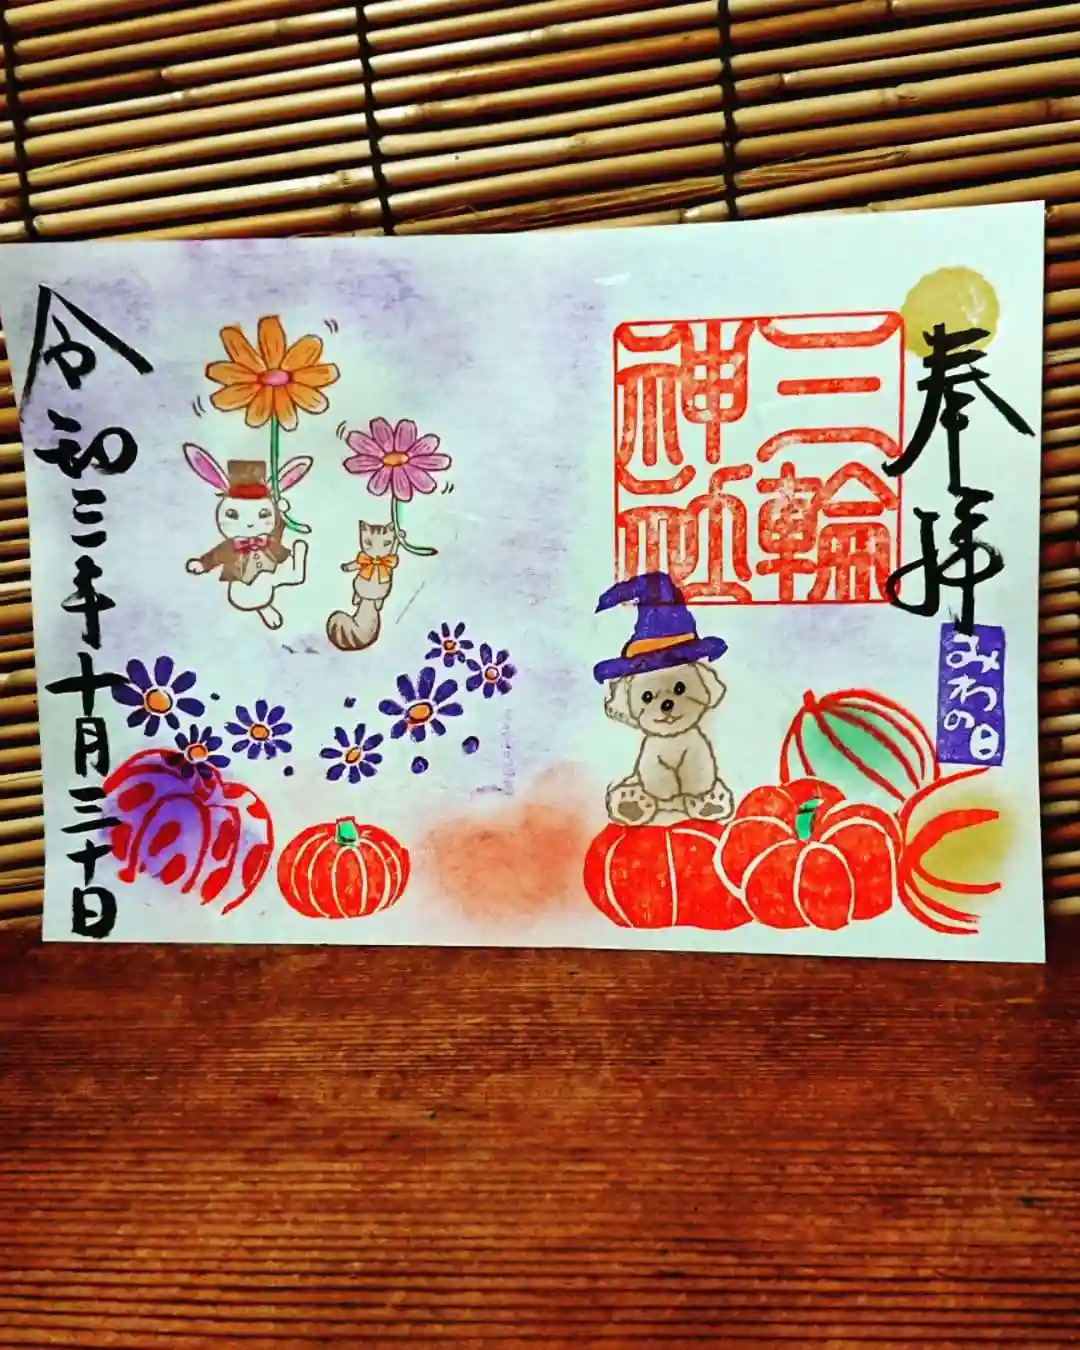 奉拝
みわの日
三輪
神社
令和三年十月三十日